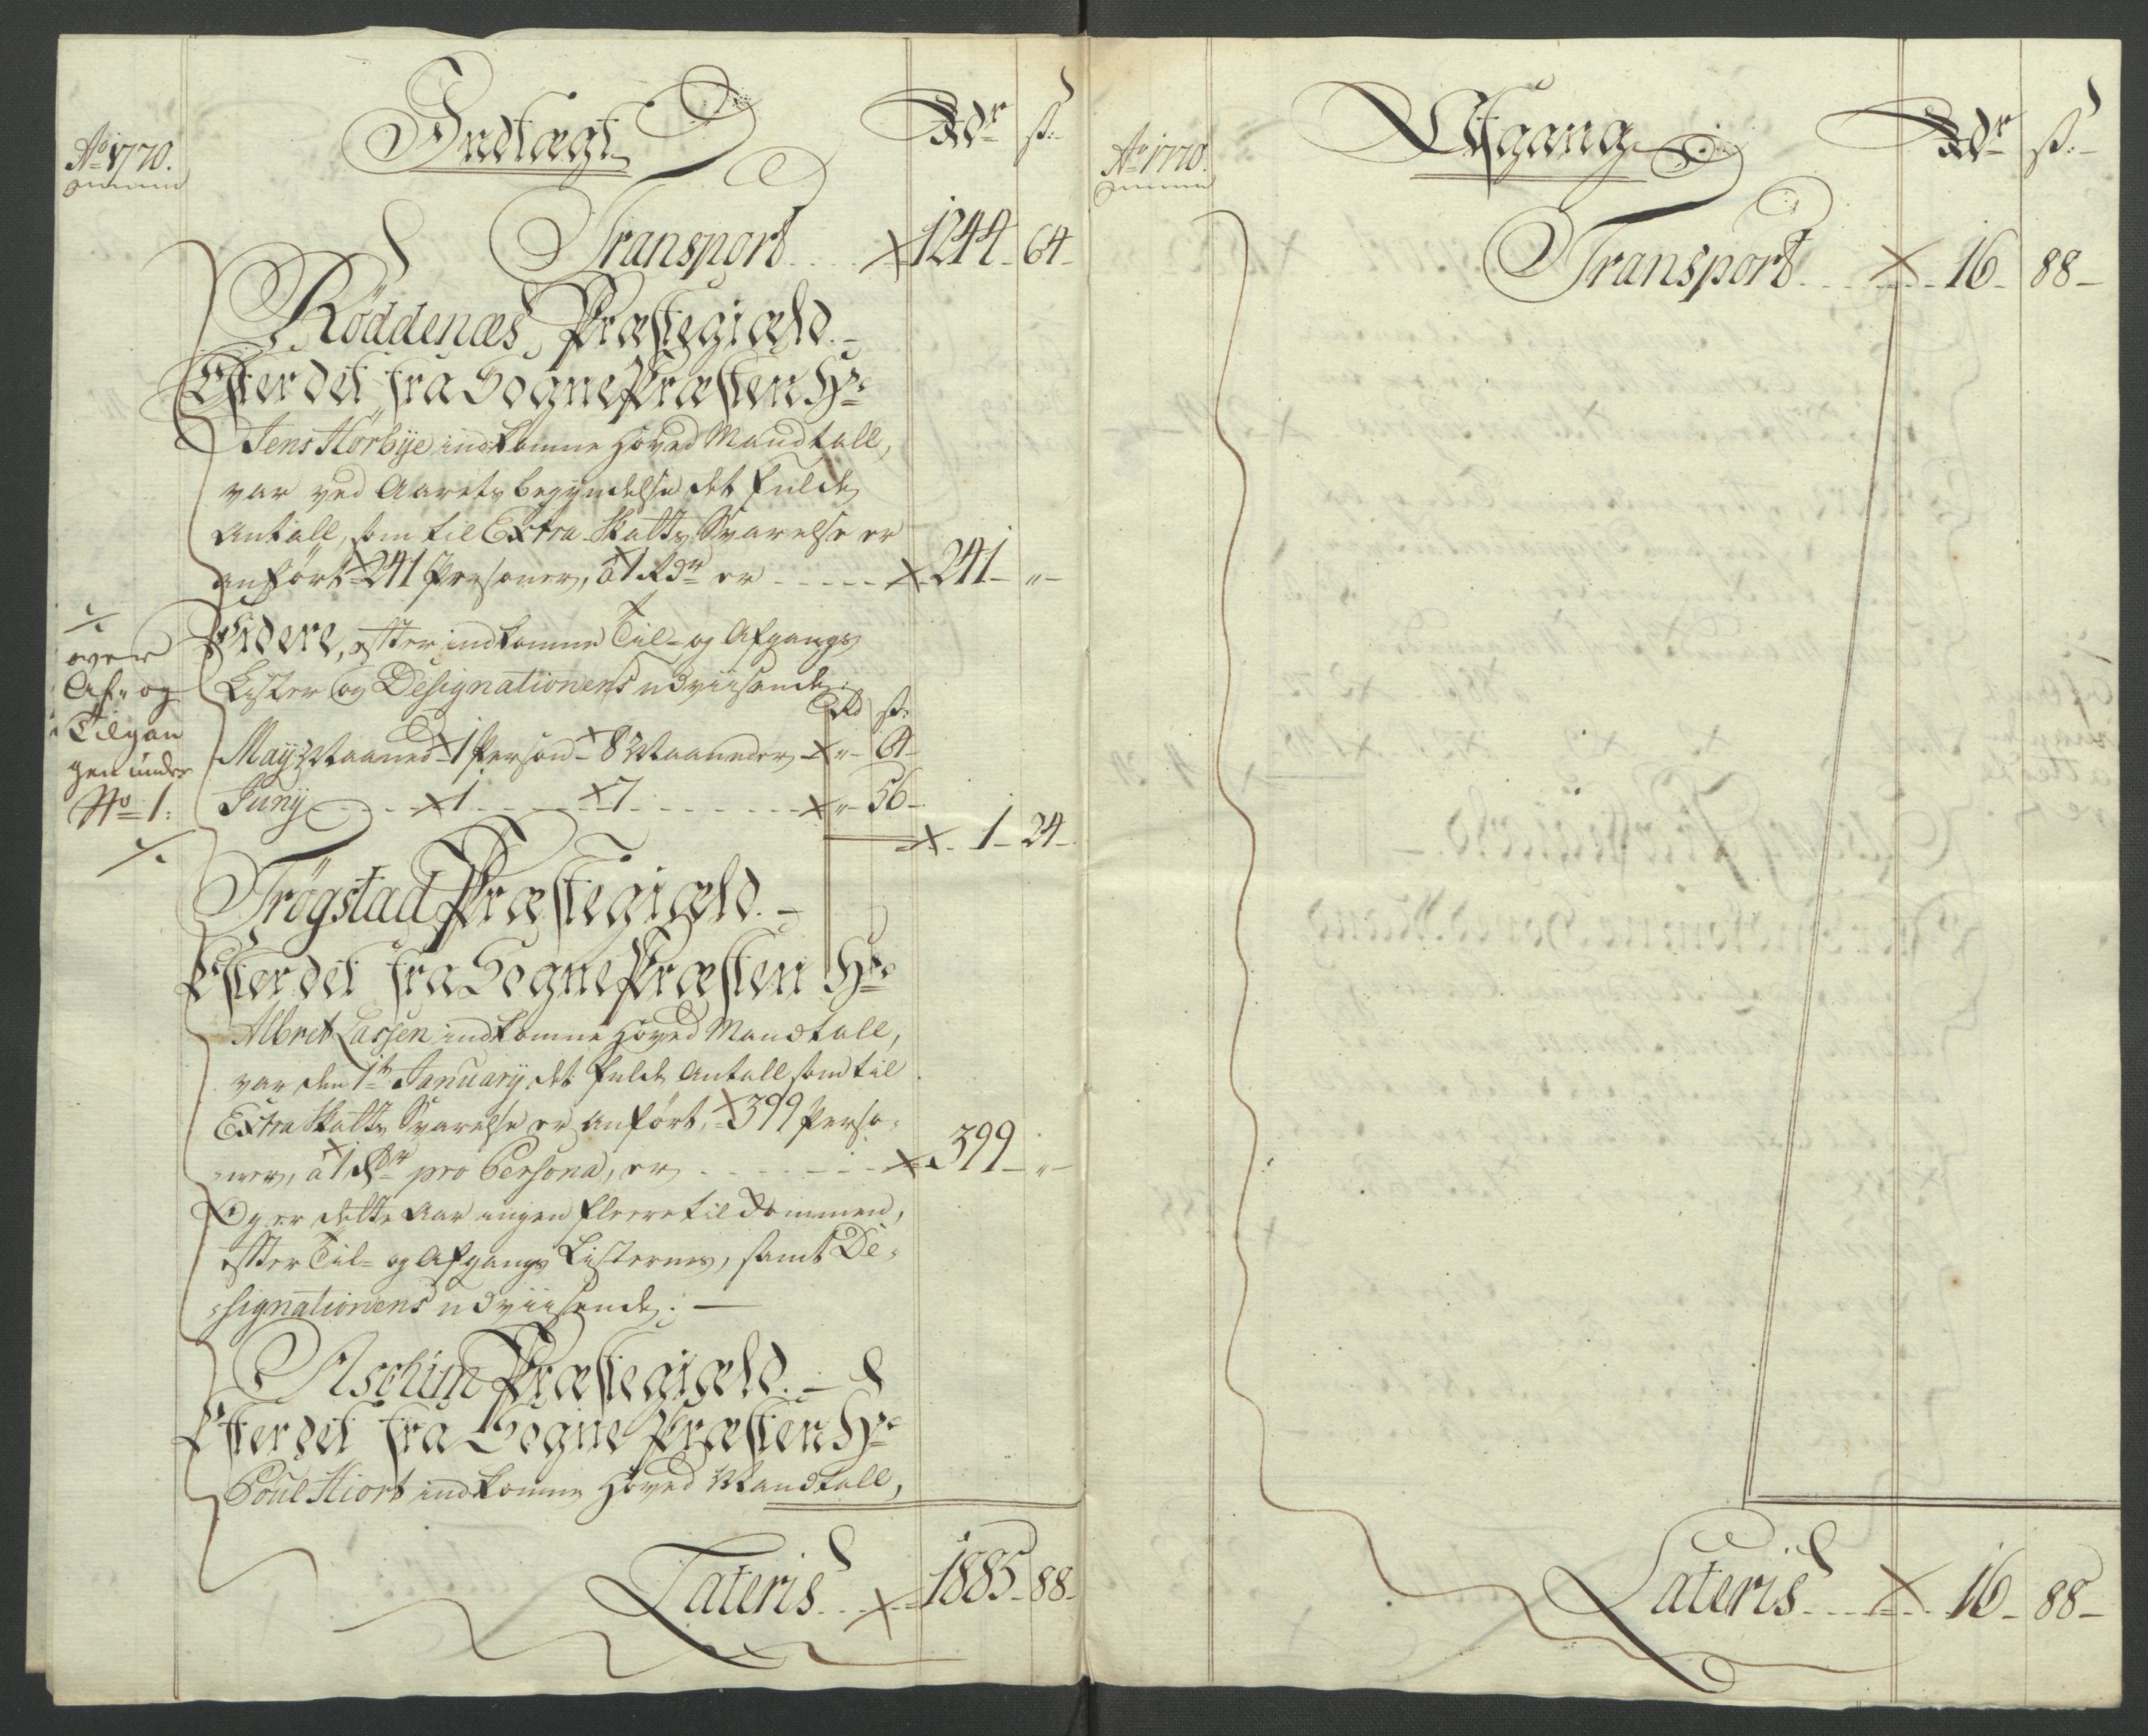 Ao 1770.
Indtægt
Rdr
ß:
Transport .... 1244 64
Röddenæs Præstegield.
Efter det fra Sogne Præsten Hr
Jens Hörbÿe indkomne Hoved Mandtall,
var ved Aarets begyndelse det fulde
Antall, som til Extra Skatts Svarelse er
anfört 241 Personer, â 1 Rdr er ..... 241 "
Videre, efter indkomne Til- og Afgangs
Lister og Designationens udviisende.
Rd ß:
Maÿ Maaned 1 Person 8 Maaneder " 64
Junÿ ... 1 ... 7 ... " 56
1 24
./.
over
Af- og
Tilgan
gen under
No 1:
./.
Trögstad Præstegield.
Efter det fra Sogne Præsten Hr
Albret Lassen indkomne Hoved Mandtall,
var den 1te Januarÿ det fulde Antall som til
Extra Skatts Svarelse er anfört, 399 Perso-
ner, â 1 Rdr pro Persona, er ..... 399 "
Og er dette Aar ingen fleere tilkommen,
efter Til- og Afgangs Listernes, samt De-
signationens udviisende.
Aschim Præstegield.
Efter det fra Sogne Præsten Hr
Poul Hiort indkomne Hoved Mandtall,
Lateris .... 1885 88
Ao 1770.
Udgang
Rdr
ß:
Transport .... 16 88
Lateris .... 16 88